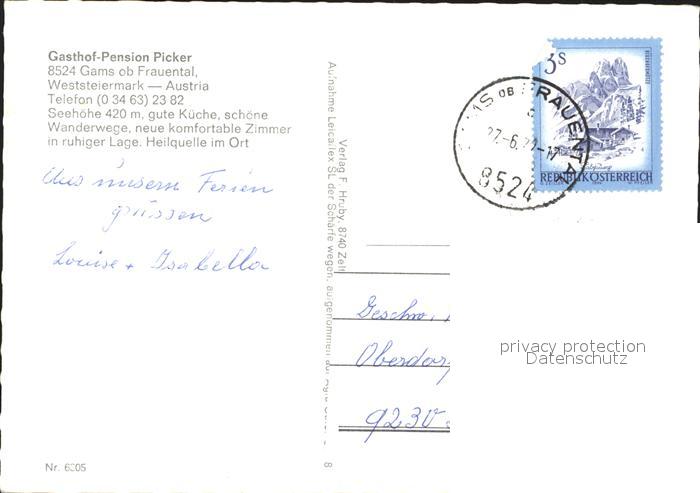 Gasthof-Pension Picker
8524 Gams ob Frauental,
Weststeiermark — Austria
Telefon (0 34 63) 23 82
Seehöhe 420 m, gute Küche, schöne
Wanderwege, neue komfortable Zimmer
in ruhiger Lage. Heilquelle im Ort
Aus unsern Ferien
grüssen
Louise + Isabella
Nr. 6305
Verlag F. Hruby, 8740 Zelt
Aufnahme Leicaflex SL der Schärfe wegen, aufgenommen auf
8
5s
REPUBLIK ÖSTERREICH
GAMS OB FRAUENTAL
27.-6.
8524
Geschw.
Oberdorf
9230
privacy protection
Datenschutz